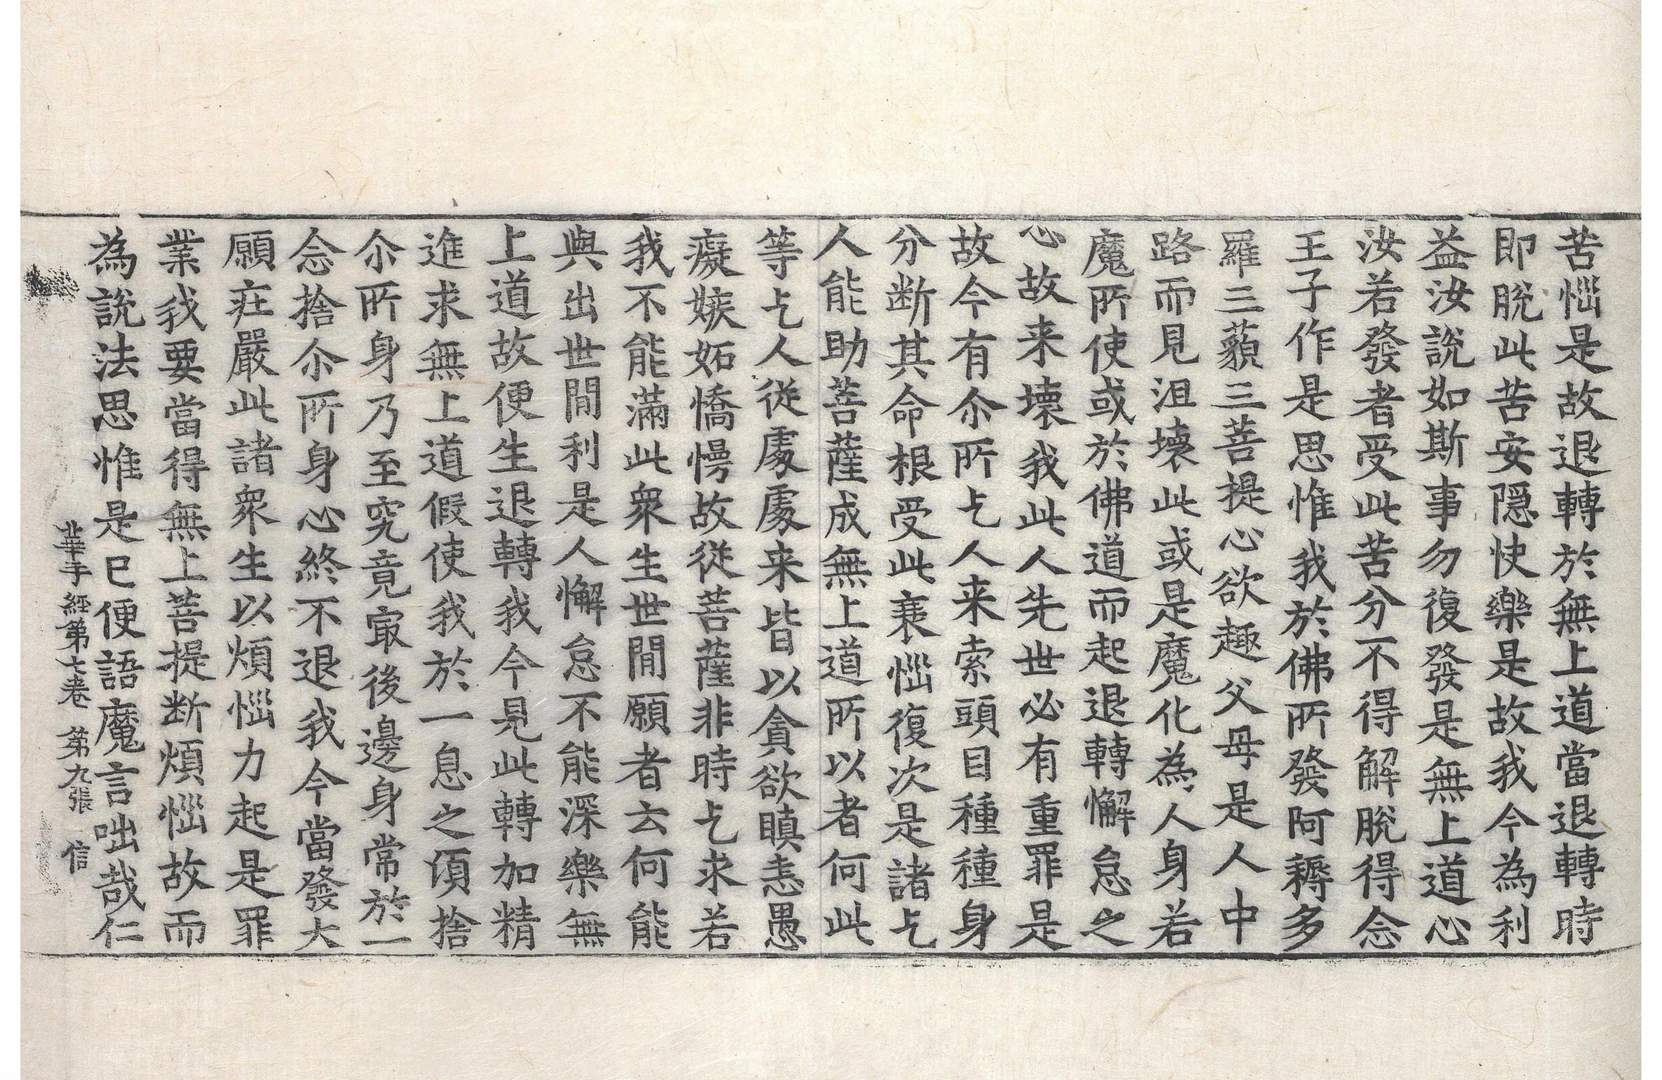 苦惱是故退轉於無上道當退轉時
即脫此苦安隱快樂是故我今為利
益汝說如斯事勿復發是無上道心
汝若發者受此苦分不得解脫得念
王子作是思惟我於佛所發阿耨多
羅三藐三菩提心欲趣父母是人中
路而見沮壞此或是魔化為人身若
魔所使或於佛道而起退轉懈怠之
心故来壞我此人先世必有重罪是
故今有尒所乞人来索頭目種種身
分断其命根受此衰惱復次是諸乞
人能助菩薩成無上道所以者何此
等乞人從處處来皆以貪欲瞋恚愚
癡嫉妬憍慢故從菩薩非時乞求若
我不能滿此衆生世閒願者云何能
與出世閒利是人懈怠不能深樂無
上道故便生退轉我今見此轉加精
進求無上道假使我於一息之湏捨
尒所身乃至究竟㝡後邊身常於一
念捨尒所身心終不退我今當發大
願疘嚴此諸衆生以煩惱力起是罪
業我要當得無上菩提断煩惱故而
為說法思惟是已便語魔言咄哉仁
華手經第七卷 第九張 信